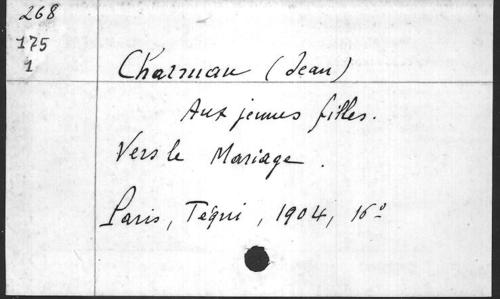 268
175
1
Charruau (Jean)
Aux jeunes filles.
Vers le Mariage.
Paris, Téqui, 1904, 16º